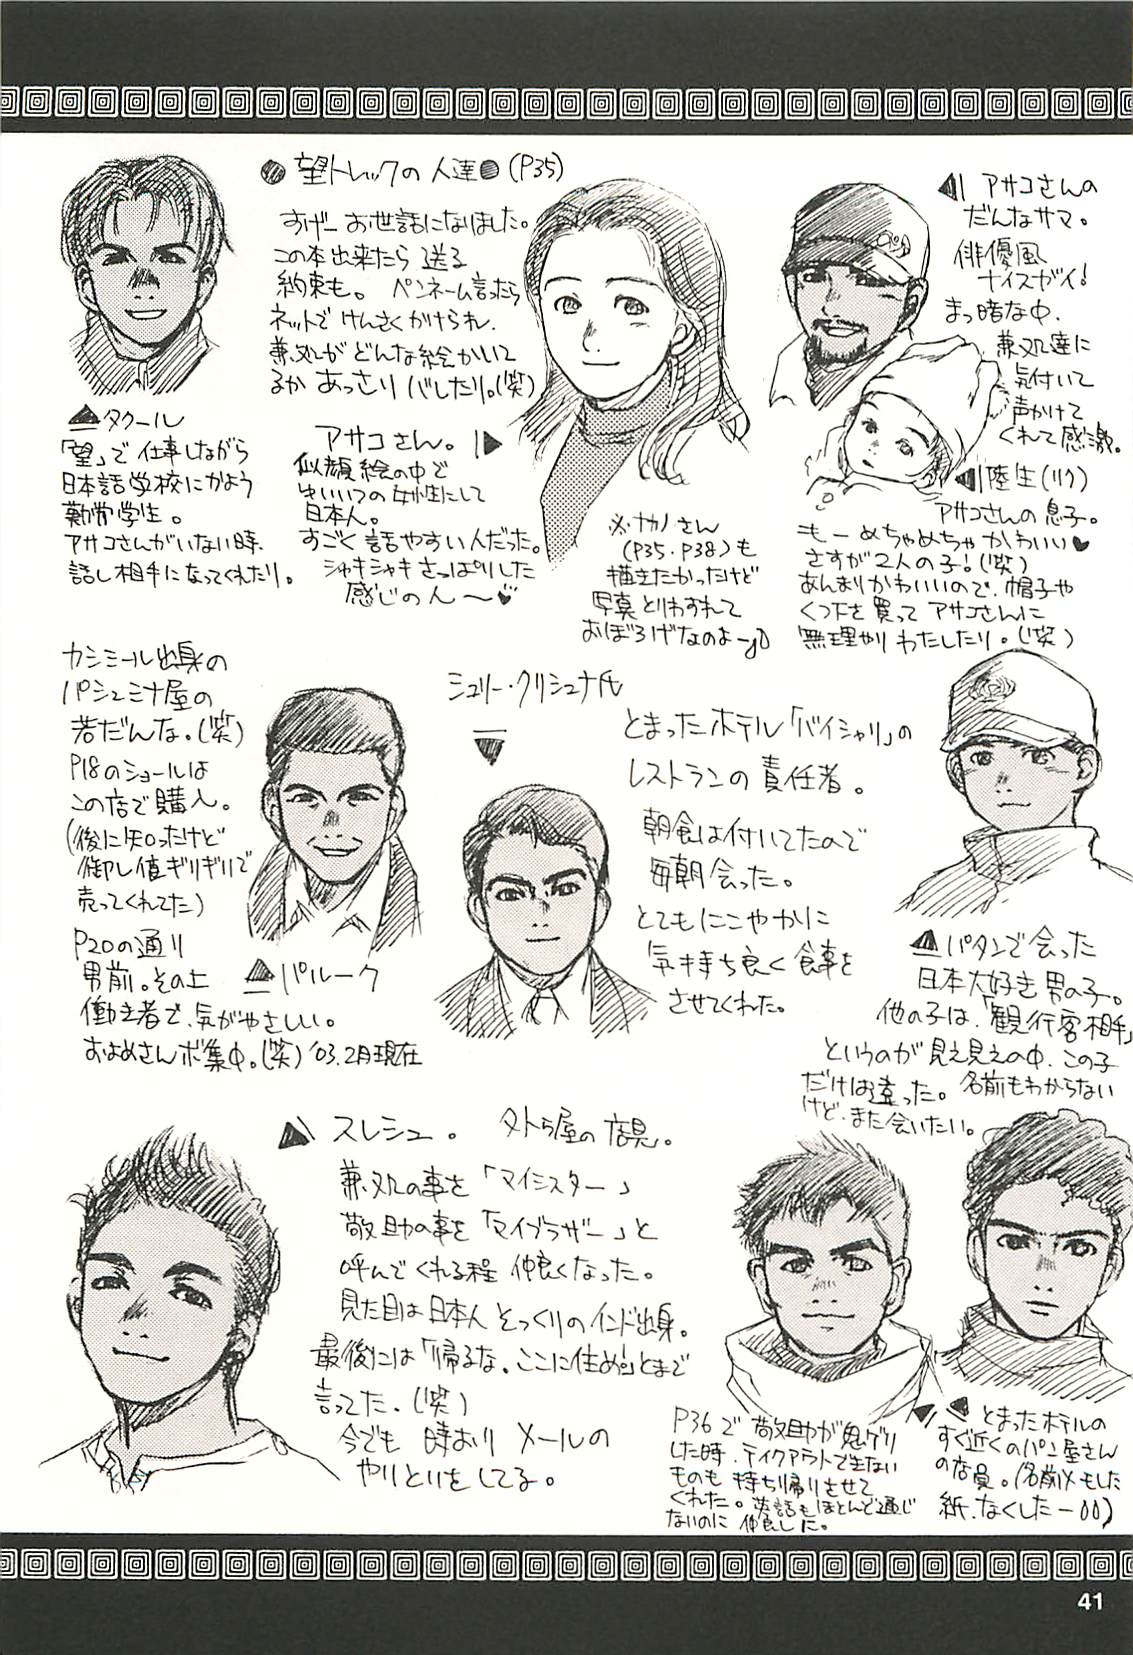 ●望トレックの人達●(P35)
すげーお世話になりました。
この本出来たら送る
約束も。ペンネーム言ったら
ネットでけんさくかけられ、
兼処がどんな絵かいて
るかあっさりバレたり。(笑)
▲タクール
「望」で仕事しながら
日本語学校にかよう
勤労学生。
アサコさんがいない時、
話し相手になってくれたり。
アサコさん。▶
似顔絵の中で
ゆいいつの女性にして
日本人。
すごく話やすい人だった。
シャキシャキさっぱりした
感じの人〜♥
※ナカノさん
(P35、P38)も
描きたかったけど
写真とりわすれて
おぼろげなのよー
◀アサコさんの
だんなサマ。
俳優風
ナイスガイ!
まっ暗な中、
兼処達に
気付いて
声かけて
くれて感激。
◀陸生(リク)
アサコさんの息子。
もーめちゃめちゃかわいい♥
さすが2人の子!(笑)
あんまりかわいいので、帽子や
くつ下を買ってアサコさんに
無理やりわたしたり。(笑)
カシミール出身の
パシュミナ屋の
若だんな。(笑)
P18のショールは
この店で購入。
(後に知ったけど
卸し値ギリギリで
売ってくれてた)
P20の通り
男前。その上
働き者で、気がやさしい。
およめさんボ集中。(笑)'03.2月現在
▲パルーク
シュリー・クリシュナ氏
▼
とまったホテル「バイシャリ」の
レストランの責任者。
朝食は付いてたので
毎朝会った。
とてもにこやかに
気持ち良く食事を
させてくれた。
▲パタンで会った
日本大好き男の子。
他の子は、「観行客相手」
というのが見え見えの中、この子
だけは違った。名前もわからない
けど、また会いたい。
▲スレシュ。タトゥ屋の店員。
兼処の事を「マイシスター」
敬助の事を「マイブラザー」と
呼んでくれる程仲良くなった。
見た目は日本人そっくりのインド出身。
最後には「帰るな。ここに住め」とまで
言ってた。(笑)
今でも時おりメールの
やりとりをしてる。
P36で敬助が鬼ゲリ
した時、テイクアウトで主ない
ものも持ち帰りさせて
くれた。英語もほとんど通じ
ないのに仲良しに。
▲とまったホテルの
すぐ近くのパン屋さん
の店員。(名前メモした
紙、なくしたー)
41